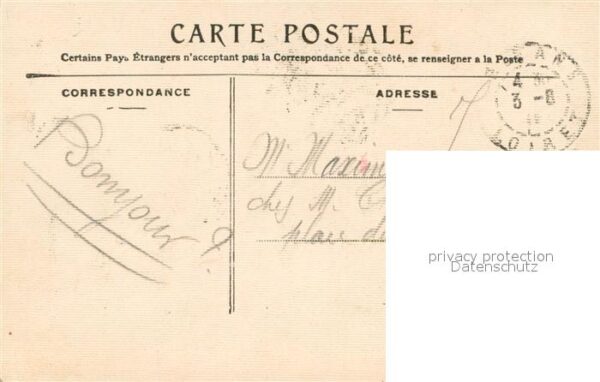 CARTE POSTALE
Certains Pays Étrangers n'acceptant pas la Correspondance de ce côté, se renseigner à la Poste
CORRESPONDANCE
ADRESSE
Bonjour
Mr Maxim
chez M.
place d
3 -8
LOIRET
privacy protection
Datenschutz